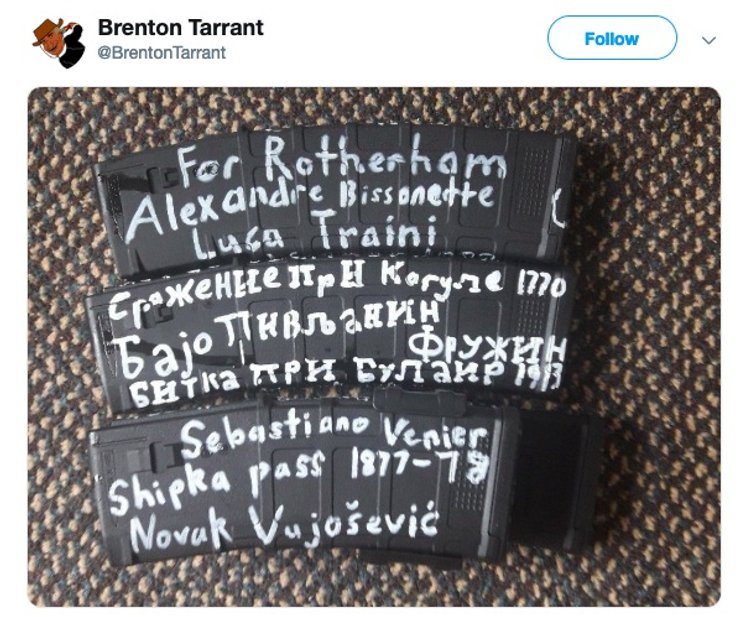 Brenton Tarrant
@BrentonTarrant
Follow
For Rotherham
Alexandre Bissonette
Luca Traini
Сражение при Кагуле 1770
Бајо Пивљанин
Фружин
Битка при Булаир 1913
Sebastiano Venier
Shipka pass 1877-78
Novak Vujošević